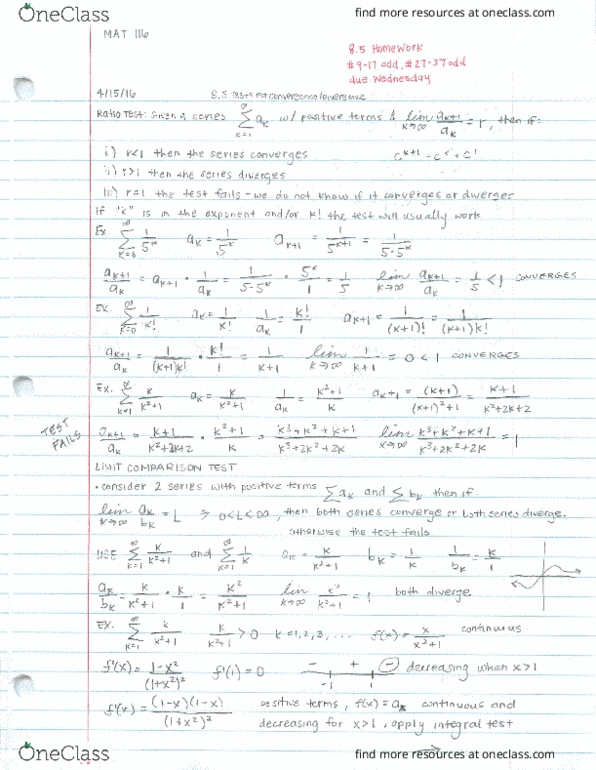 OneClass
find more resources at oneclass.com
MAT 116
8.5 Homework
#9-17 odd, #27-37 odd
due Wednesday
4/15/16
8.5 Tests for convergence/divergence
RATIO TEST: Given a series ∞ Σ k=1 a_k w/ positive terms & lim k→∞ a_k+1/a_k = r, then if:
i) r<1 then the series converges
ii) r>1 then the series diverges
iii) r=1 the test fails - we do not know if it converges or diverges
If "k" is in the exponent and/or k! the test will usually work
Ex. ∞ Σ 1/5^k a_k = 1/5^k a_k+1 = 1/5^k+1 = 1/5·5^k
a_k+1/a_k = a_k+1 · 1/a_k = 1/5·5^k · 5^k/1 = 1/5 lim k→∞ a_k+1/a_k = 1/5 < 1 CONVERGES
EX. ∞ Σ k=0 1/k! a_k = 1/k! 1/a_k = k!/1 a_k+1 = 1/(k+1)! = 1/(k+1)k!
a_k+1/a_k = 1/(k+1)k! · k!/1 = 1/k+1 lim k→∞ 1/k+1 = 0 < 1 CONVERGES
Ex. ∞ Σ k=1 k/k²+1 a_k = k/k²+1 1/a_k = k²+1/k a_k+1 = (k+1)/(k+1)²+1 = k+1/k²+2k+2
TEST FAILS
a_k+1/a_k = k+1/k²+2k+2 · k²+1/k = k³+k²+k+1/k³+2k²+2k lim k³+k²+k+1/k³+2k²+2k = 1
LIMIT COMPARISON TEST
• consider 2 series with positive terms Σa_k and Σb_k then if:
lim k→∞ a_k/b_k = L > 0<L<∞, then both series converge or both series diverge.
otherwise the test fails
USE ∞ Σ k=1 k/k²+1 and ∞ Σ k=1 1/k a_k = k/k²+1 b_k = 1/k 1/b_k = k/1
a_k/b_k = k/k²+1 · k/1 = k²/k²+1 lim k→∞ k²/k²+1 = 1 both diverge
EX. ∞ Σ k=1 k/k²+1 k/k²+1 > 0 k=1,2,3,... f(x) = x/x²+1 continuous
f'(x) = 1-x²/(1+x²)² f'(1) = 0 - + - decreasing when x>1
-1 1
f'(x) = (1-x)(1-x)/(1+x²)² positive terms, f(x) = a_k continuous and
decreasing for x>1, apply integral test
OneClass
find more resources at oneclass.com